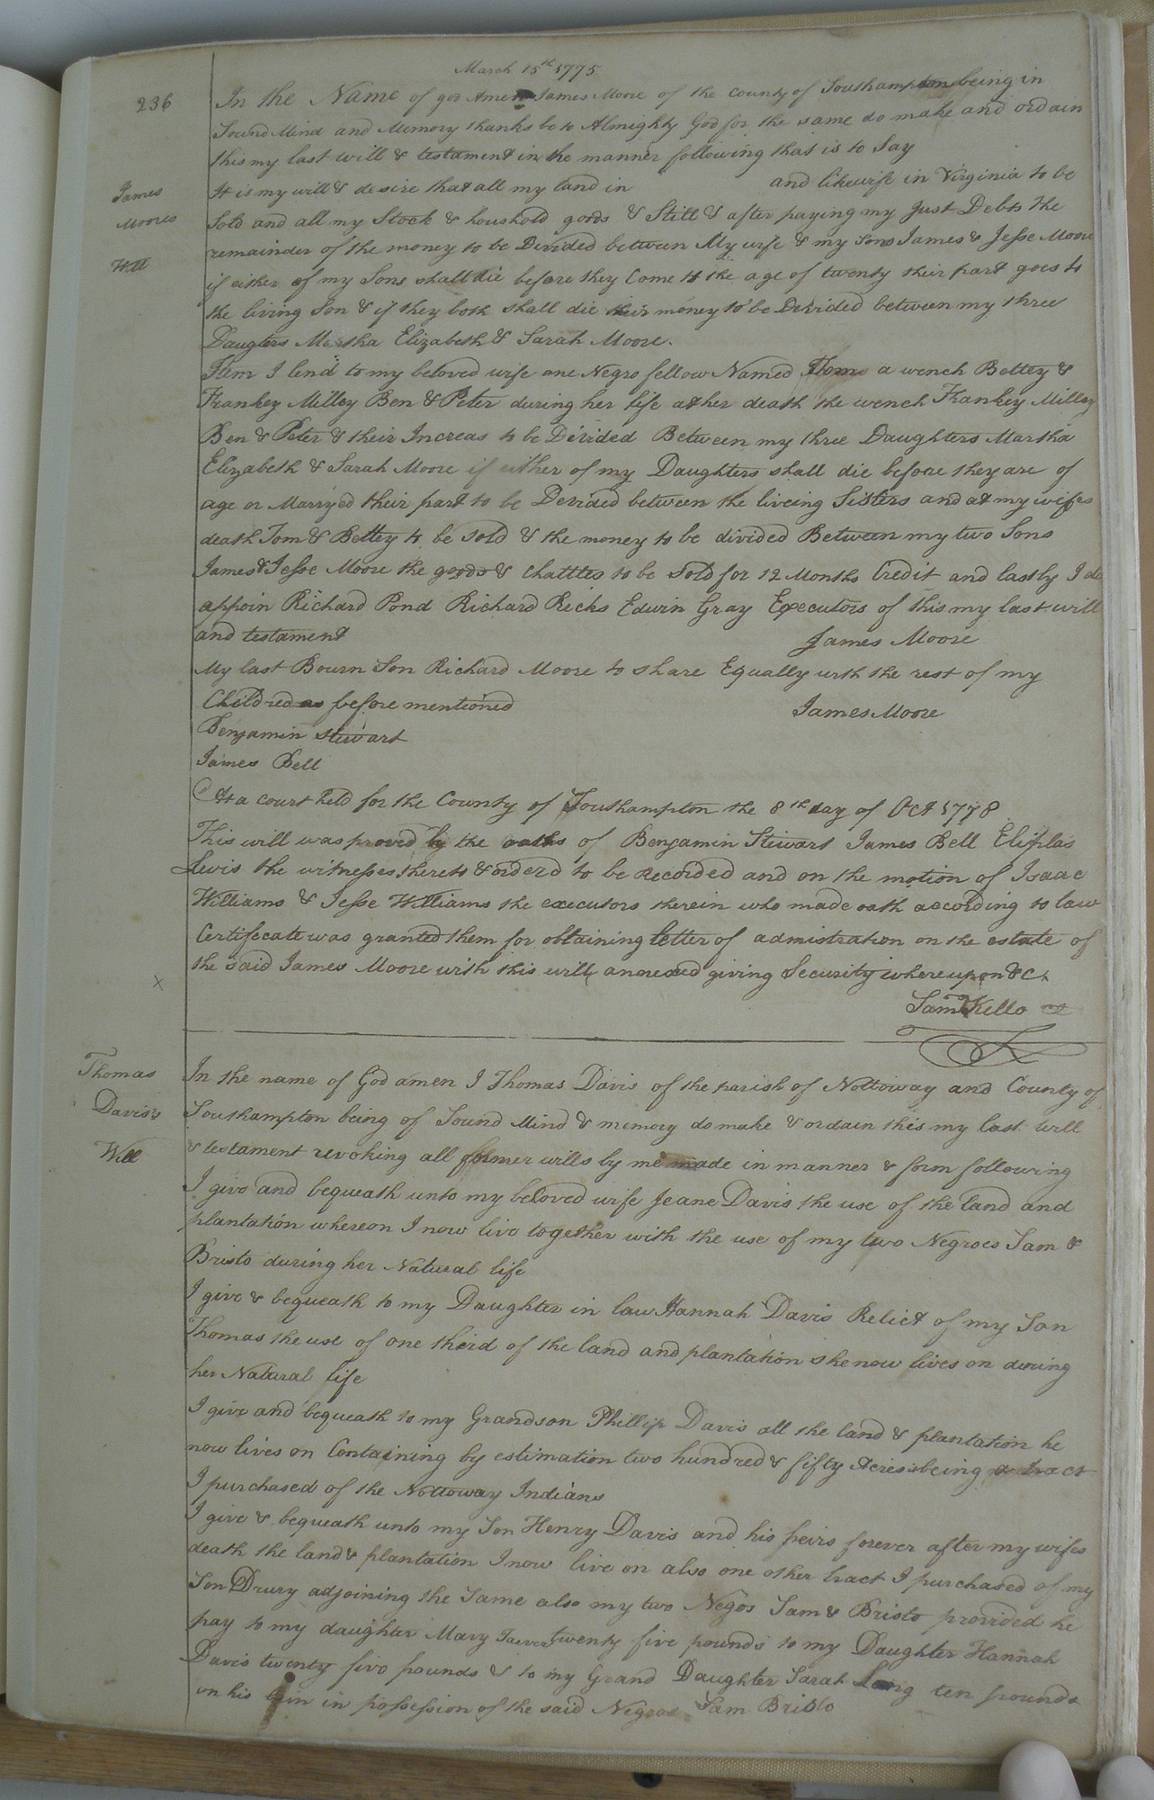 March 15th 1775
236
In the Name of god Amen James Moore of the County of Southampton being in
Sound Mind and Memory thanks be to Almighty God for the same do make and ordain
this my last will & testament in the manner following that is to Say
James
Moores
Will
It is my will & desire that all my land in and likewise in Virginia to be
Sold and all my Stock & houshold goods & Still & after paying my Just Debts the
remainder of the money to be Devided between My wife & my Sons James & Jesse Moore
if either of my Sons shall die before they Come to the age of twenty their part goes to
the living Son & if they both shall die their money to be Devided between my three
Daugters Martha Elizabeth & Sarah Moore.
Item I lend to my beloved wife one Negro fellow Named Tom a wench Bettey &
Frankey Milley Ben & Peter during her life at her death the wench Frankey Milley
Ben & Peter & their Increas to be Devided Between my three Daughters Martha
Elizabeth & Sarah Moore if either of my Daughters shall die before they are of
age or Marryed their part to be Devided between the liveing Sisters and at my wifes
death Tom & Bettey to be sold & the money to be divided Between my two Sons
James & Jesse Moore the goods & Chattles to be Sold for 12 Months Credit and lastly I do
appoin Richard Pond Richard Ricks Edwin Gray Executors of this my last will
and testament James Moore
My last Bourn Son Richard Moore to share Equally with the rest of my
Children as before mentioned James Moore
Benjamin Stewart
James Bell
At a court held for the County of Southampton the 8th day of Oct 1778
This will was proved by the oaths of Benjamin Stewart James Bell
Lewis the witnesses thereto & orderd to be Recorded and on the motion of Isaac
Williams & Jesse Williams the executors therein who made oath according to law
Certifecate was granted them for obtaining letter of admistration on the estate of
the said James Moore with this will annexed giving Security whereupon &c
x
Saml Kello
Thomas
Davis's
Will
In the name of God amen I Thomas Davis of the parish of Nottoway and County of
Southampton being of Sound Mind & memory do make & ordain this my last will
& testament revoking all former wills by me made in manner & form following
I give and bequeath unto my beloved wife Jeane Davis the use of the land and
plantation whereon I now live together with the use of my two Negroes Sam &
Bristo during her Natural life
I give & bequeath to my Daughter in law Hannah Davis Relict of my Son
Thomas the use of one third of the land and plantation she now lives on during
her Natural life
I give and bequeath to my Grandson Phillip Davis all the land & plantation he
now lives on Containing by estimation two hundred & fifty Acres being a tract
I purchased of the Nottoway Indians
I give & bequeath unto my Son Henry Davis and his heirs forever after my wifes
death the land & plantation I now live on also one other tract I purchased of my
Son Drury adjoining the Same also my two Negos Sam & Bristo provided he
pay to my daughter Mary twenty five pounds to my Daughter Hannah
Davis twenty five pounds & to my Grand Daughter Sarah Long ten pounds
on his in possession of the said Negroes Sam Bristo